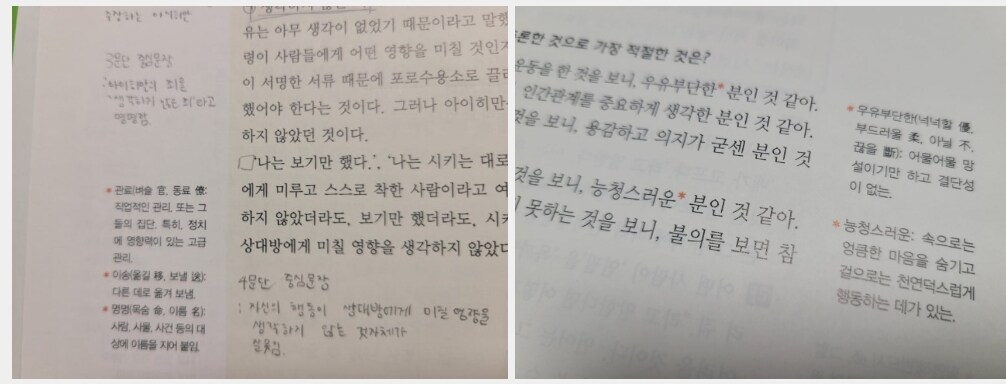 주장하는
3문단 중심문장
: 아이히만의 죄를
'생각하지 않은 죄'라고
명명함.
* 관료(벼슬 官, 동료 僚):
직업적인 관리. 또는 그
들의 집단. 특히, 정치
에 영향력이 있는 고급
관리.
* 이송(옮길 移, 보낼 送):
다른 데로 옮겨 보냄.
* 명명(목숨 命, 이름 名):
사람, 사물, 사건 등의 대
상에 이름을 지어 붙임.
유는 아무 생각이 없었기 때문이라고 말했
령이 사람들에게 어떤 영향을 미칠 것인지
이 서명한 서류 때문에 포로수용소로 끌려
했어야 한다는 것이다. 그러나 아이히만은
하지 않았던 것이다.
'나는 보기만 했다.', '나는 시키는 대로
에게 미루고 스스로 착한 사람이라고 여
하지 않았더라도, 보기만 했더라도, 시키
상대방에게 미칠 영향을 생각하지 않았다
4문단 중심문장
: 자신의 행동이 상대방에게 미칠 영향을
생각하지 않는 것 자체가
잘못임.
론한 것으로 가장 적절한 것은?
운동을 한 것을 보니, 우유부단한* 분인 것 같아.
인간관계를 중요하게 생각한 분인 것 같아.
것을 보니, 용감하고 의지가 굳센 분인 것
것을 보니, 능청스러운* 분인 것 같아.
못하는 것을 보니, 불의를 보면 참
* 우유부단한(넉넉할 優,
부드러울 柔, 아닐 不,
끊을 斷): 어물어물 망
설이기만 하고 결단성
이 없는.
* 능청스러운: 속으로는
엉큼한 마음을 숨기고
겉으로는 천연덕스럽게
행동하는 데가 있는.